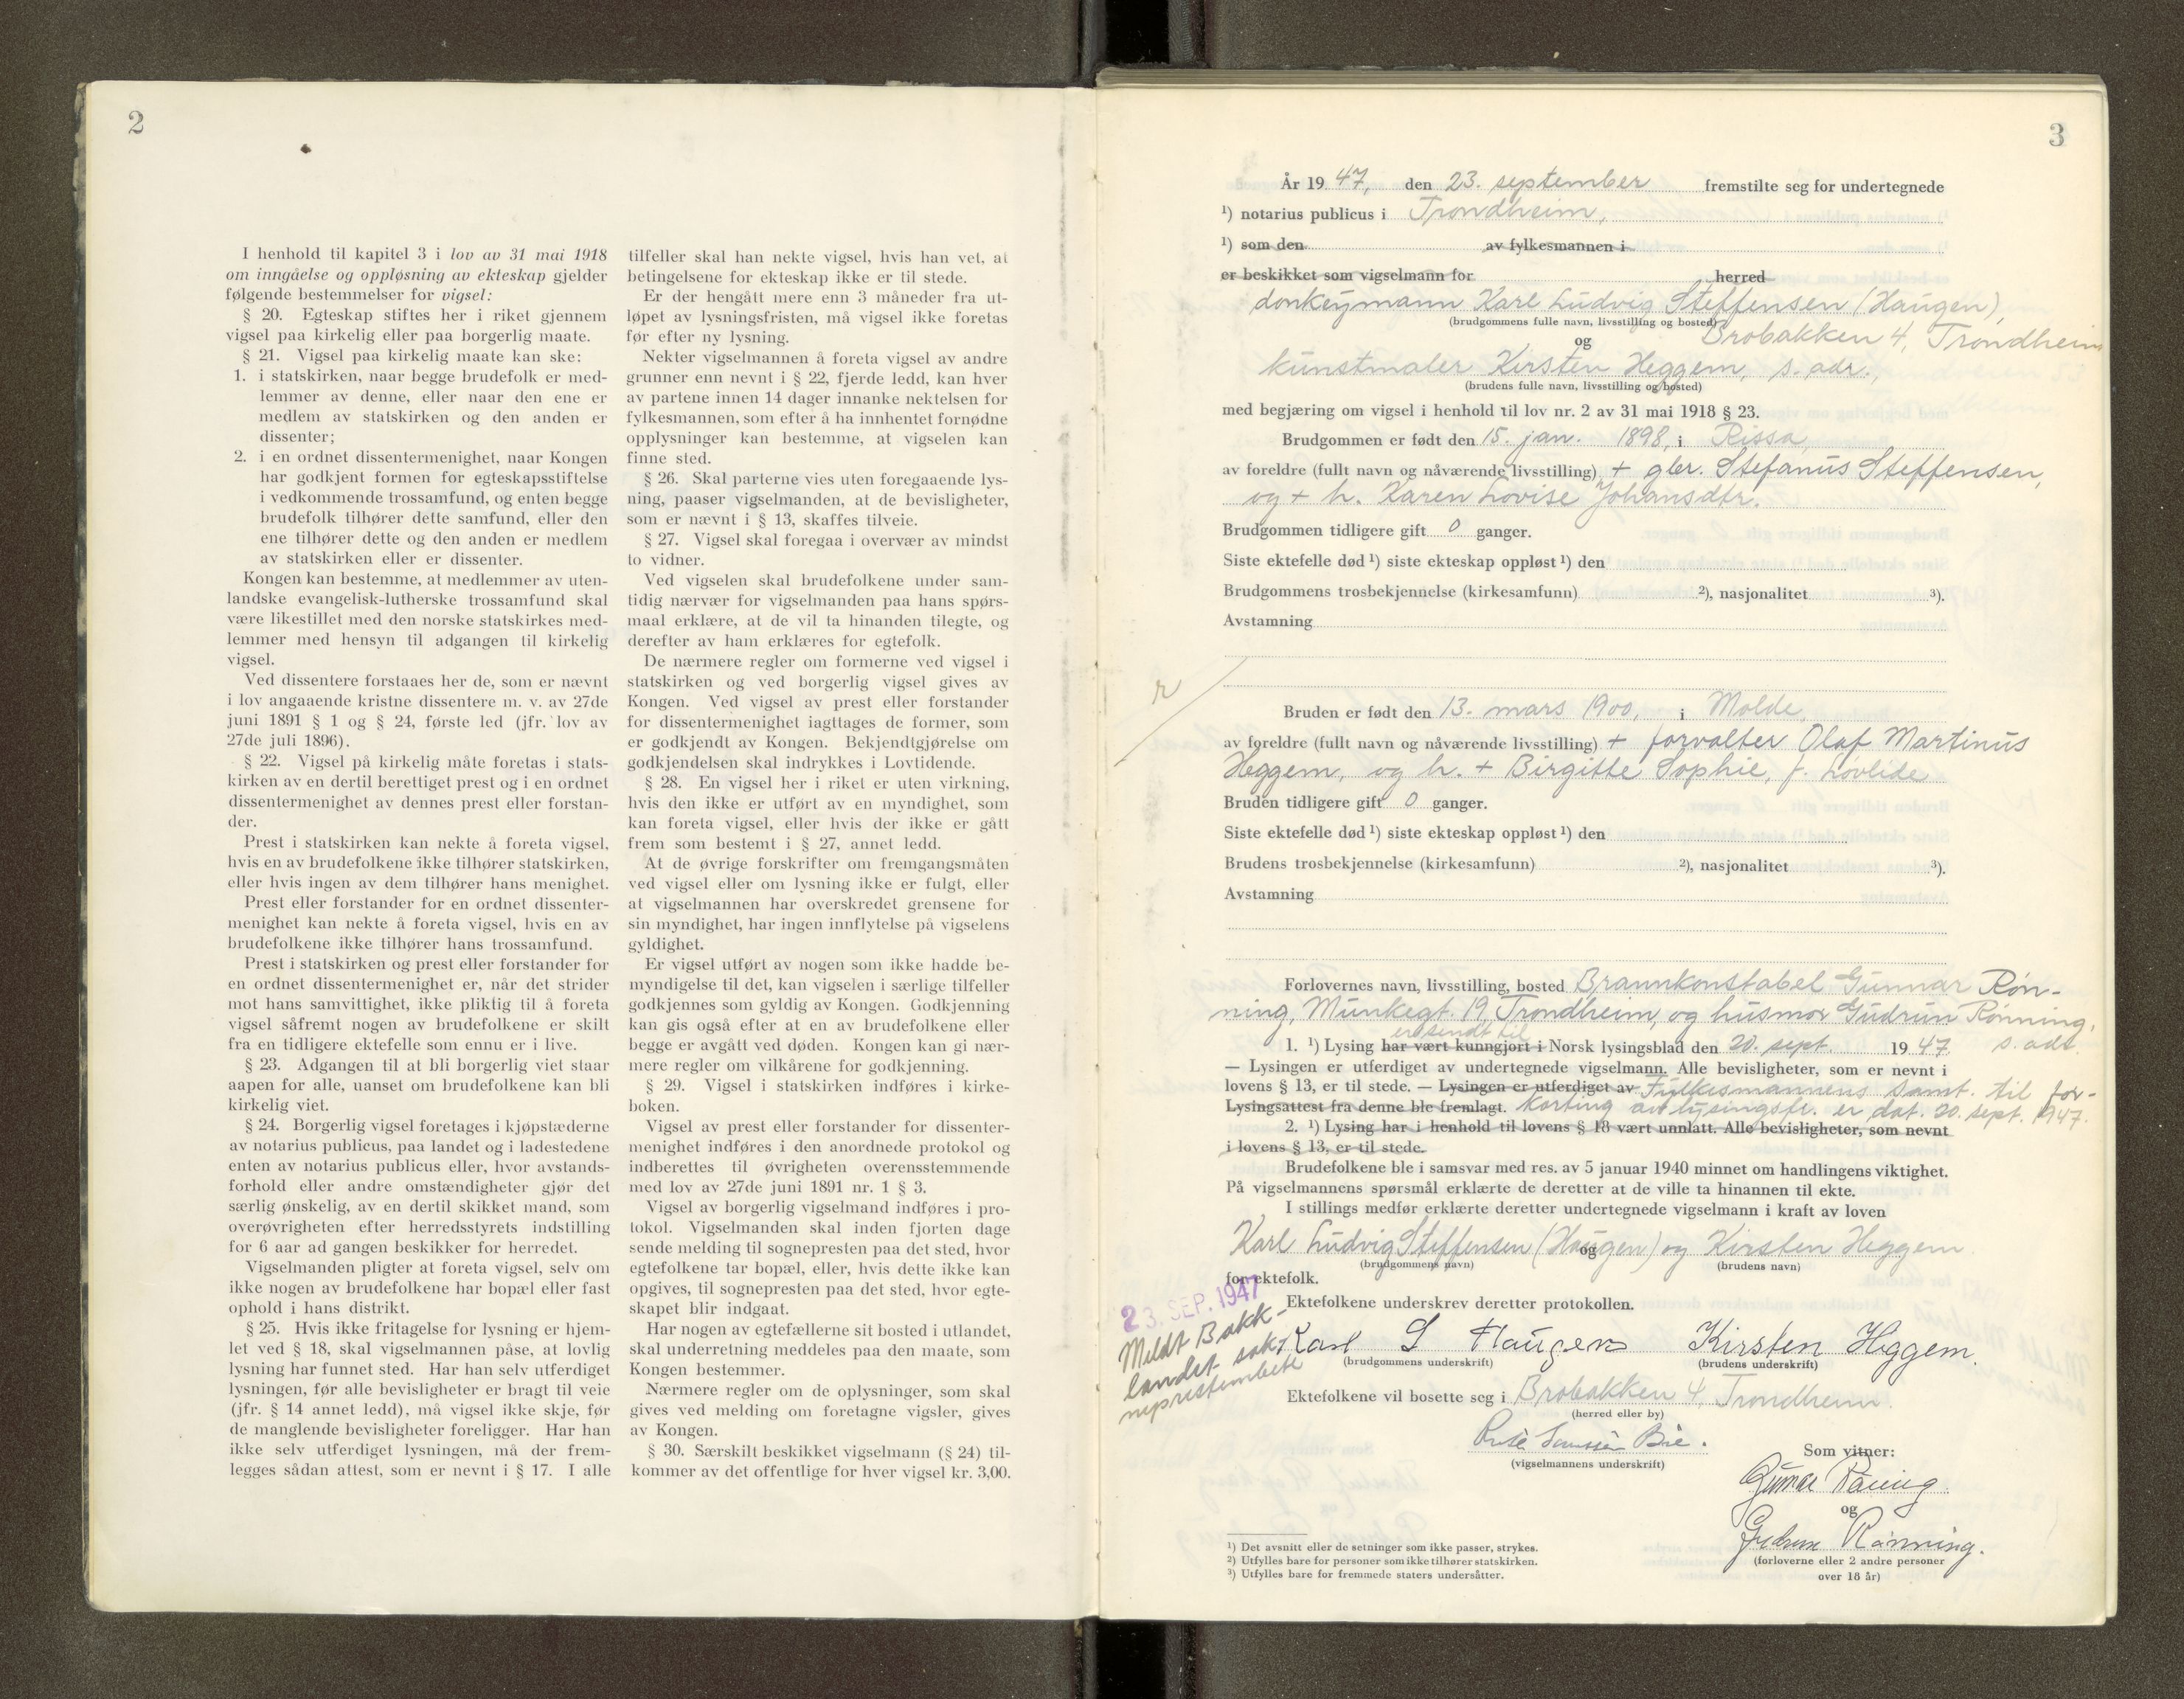 2
I henhold til kapitel 3 i lov av 31 mai 1918
om inngåelse og oppløsning av ekteskap gjelder
følgende bestemmelser for vigsel:
§ 20. Egteskap stiftes her i riket gjennem
vigsel paa kirkelig eller paa borgerlig maate.
§ 21. Vigsel paa kirkelig maate kan ske:
1. i statskirken, naar begge brudefolk er med-
lemmer av denne, eller naar den ene er
medlem av statskirken og den anden er
dissenter;
2. i en ordnet dissentermenighet, naar Kongen
har godkjent formen for egteskapsstiftelse
i vedkommende trossamfund, og enten begge
brudefolk tilhører dette samfund, eller den
ene tilhører dette og den anden er medlem
av statskirken eller er dissenter.
Kongen kan bestemme, at medlemmer av uten-
landske evangelisk-lutherske trossamfund skal
være likestillet med den norske statskirkes med-
lemmer med hensyn til adgangen til kirkelig
vigsel.
Ved dissentere forstaaes her de, som er nævnt
i lov angaaende kristne dissentere m. v. av 27de
juni 1891 § 1 og § 24, første led (jfr. lov av
27de juli 1896).
§ 22. Vigsel på kirkelig måte foretas i stats-
kirken av en dertil berettiget prest og i en ordnet
dissentermenighet av dennes prest eller forstan-
der.
Prest i statskirken kan nekte å foreta vigsel,
hvis en av brudefolkene ikke tilhører statskirken,
eller hvis ingen av dem tilhører hans menighet.
Prest eller forstander for en ordnet dissenter-
menighet kan nekte å foreta vigsel, hvis en av
brudefolkene ikke tilhører hans trossamfund.
Prest i statskirken og prest eller forstander for
en ordnet dissentermenighet er, når det strider
mot hans samvittighet, ikke pliktig til å foreta
vigsel såfremt nogen av brudefolkene er skilt
fra en tidligere ektefelle som ennu er i live.
§ 23. Adgangen til at bli borgerlig viet staar
aapen for alle, uanset om brudefolkene kan bli
kirkelig viet.
§ 24. Borgerlig vigsel foretages i kjøpstæderne
av notarius publicus, paa landet og i ladestedene
enten av notarius publicus eller, hvor avstands-
forhold eller andre omstændigheter gjør det
særlig ønskelig, av en dertil skikket mand, som
overøvrigheten efter herredsstyrets indstilling
for 6 aar ad gangen beskikker for herredet.
Vigselmanden pligter at foreta vigsel, selv om
ikke nogen av brudefolkene har bopæl eller fast
ophold i hans distrikt.
§ 25. Hvis ikke fritagelse for lysning er hjem-
let ved § 18, skal vigselmannen påse, at lovlig
lysning har funnet sted. Har han selv utferdiget
lysningen, før alle bevisligheter er bragt til veie
(jfr. § 14 annet ledd), må vigsel ikke skje, før
de manglende bevisligheter foreligger. Har han
ikke selv utferdiget lysningen, må der frem-
legges sådan attest, som er nevnt i § 17. I alle
tilfeller skal han nekte vigsel, hvis han vet, at
betingelsene for ekteskap ikke er til stede.
Er der hengått mere enn 3 måneder fra ut-
løpet av lysningsfristen, må vigsel ikke foretas
før efter ny lysning.
Nekter vigselmannen å foreta vigsel av andre
grunner enn nevnt i § 22, fjerde ledd, kan hver
av partene innen 14 dager innanke nektelsen for
fylkesmannen, som efter å ha innhentet fornødne
opplysninger kan bestemme, at vigselen kan
finne sted.
§ 26. Skal parterne vies uten foregaaende lys-
ning, paaser vigselmanden, at de bevisligheter,
som er nævnt i § 13, skaffes tilveie.
§ 27. Vigsel skal foregaa i overvær av mindst
to vidner.
Ved vigselen skal brudefolkene under sam-
tidig nærvær for vigselmanden paa hans spørs-
maal erklære, at de vil ta hinanden tilegte, og
derefter av ham erklæres for egtefolk.
De nærmere regler om formerne ved vigsel i
statskirken og ved borgerlig vigsel gives av
Kongen. Ved vigsel av prest eller forstander
for dissentermenighet iagttages de former, som
er godkjendt av Kongen. Bekjendtgjørelse om
godkjendelsen skal indrykkes i Lovtidende.
§ 28. En vigsel her i riket er uten virkning,
hvis den ikke er utført av en myndighet, som
kan foreta vigsel, eller hvis der ikke er gått
frem som bestemt i § 27, annet ledd.
At de øvrige forskrifter om fremgangsmåten
ved vigsel eller om lysning ikke er fulgt, eller
at vigselmannen har overskredet grensene for
sin myndighet, har ingen innflytelse på vigselens
gyldighet.
Er vigsel utført av nogen som ikke hadde be-
myndigelse til det, kan vigselen i særlige tilfeller
godkjennes som gyldig av Kongen. Godkjenning
kan gis også efter at en av brudefolkene eller
begge er avgått ved døden. Kongen kan gi nær-
mere regler om vilkårene for godkjenning.
§ 29. Vigsel i statskirken indføres i kirke-
boken.
Vigsel av prest eller forstander for dissenter-
menighet indføres i den anordnede protokol og
indberettes til øvrigheten overensstemmende
med lov av 27de juni 1891 nr. 1 § 3.
Vigsel av borgerlig vigselmand indføres i pro-
tokol. Vigselmanden skal inden fjorten dage
sende melding til sognepresten paa det sted, hvor
egtefolkene tar bopæl, eller, hvis dette ikke kan
opgives, til sognepresten paa det sted, hvor egte-
skapet blir indgaat.
Har nogen av egtefællerne sit bosted i utlandet,
skal underretning meddeles paa den maate, som
Kongen bestemmer.
Nærmere regler om de oplysninger, som skal
gives ved melding om foretagne vigsler, gives
av Kongen.
§ 30. Særskilt beskikket vigselmann (§ 24) til-
kommer av det offentlige for hver vigsel kr. 3,00.
3
År 1947, den 23. september fremstilte seg for undertegnede
¹) notarius publicus i Trondheim,
¹) som den av fylkesmannen i
er beskikket som vigselmann for herred
donkeymann Karl Ludvig Steffensen (Haugen),
(brudgommens fulle navn, livsstilling og bosted)
og Brobakken 4, Trondheim
kunstmaler Kirsten Heggem, s. adr.,
(brudens fulle navn, livsstilling og bosted)
med begjæring om vigsel i henhold til lov nr. 2 av 31 mai 1918 § 23.
Brudgommen er født den 15. jan. 1898, i Rissa,
av foreldre (fullt navn og nåværende livsstilling) + gbr. Stefanus Steffensen,
og + h. Karen Lovise Johansdtr.
Brudgommen tidligere gift 0 ganger.
Siste ektefelle død ¹) siste ekteskap oppløst ¹) den
Brudgommens trosbekjennelse (kirkesamfunn) ²), nasjonalitet ³).
Avstamning
Bruden er født den 13. mars 1900, i Molde,
av foreldre (fullt navn og nåværende livsstilling) + forvalter Olaf Martinus
Heggem, og h. + Birgitte Sophie, f. Løvlide
Bruden tidligere gift 0 ganger.
Siste ektefelle død ¹) siste ekteskap oppløst ¹) den
Brudens trosbekjennelse (kirkesamfunn) ²), nasjonalitet ³).
Avstamning
Forlovernes navn, livsstilling, bosted Brannkonstabel Gunnar Røn-
ning, Munkegt. 19, Trondheim, og husmor Gudrun Rønning,
s. adr.
er sendt til
1. ¹) Lysing har vært kunngjort i Norsk lysingsblad den 20. sept. 1947.
— Lysingen er utferdiget av undertegnede vigselmann. Alle bevisligheter, som er nevnt i
lovens § 13, er til stede. — Lysingen er utferdiget av Fylkesmannens samt. til for-
Lysingsattest fra denne ble fremlagt. korting av lysingsfr. er dat. 20. sept. 1947.
2. ¹) Lysing har i henhold til lovens § 18 vært unnlatt. Alle bevisligheter, som nevnt
i lovens § 13, er til stede.
Brudefolkene ble i samsvar med res. av 5 januar 1940 minnet om handlingens viktighet.
På vigselmannens spørsmål erklærte de deretter at de ville ta hinannen til ekte.
I stillings medfør erklærte deretter undertegnede vigselmann i kraft av loven
Karl Ludvig Steffensen (Haugen) og Kirsten Heggem
og
(brudgommens navn) (brudens navn)
for ektefolk.
23. SEP. 1947
Meldt Bakk-
landet sok-
neprestembete
Ektefolkene underskrev deretter protokollen.
Karl L Haugen Kirsten Heggem.
(brudgommens underskrift) (brudens underskrift)
Ektefolkene vil bosette seg i Brobakken 4, Trondheim.
(herred eller by)
(vigselmannens underskrift)
Som vitner:
Gunnar Rønning
og
Gudrun Rønning.
(forloverne eller 2 andre personer
over 18 år)
¹) Det avsnitt eller de setninger som ikke passer, strykes.
²) Utfylles bare for personer som ikke tilhører statskirken.
³) Utfylles bare for fremmede staters undersåtter.